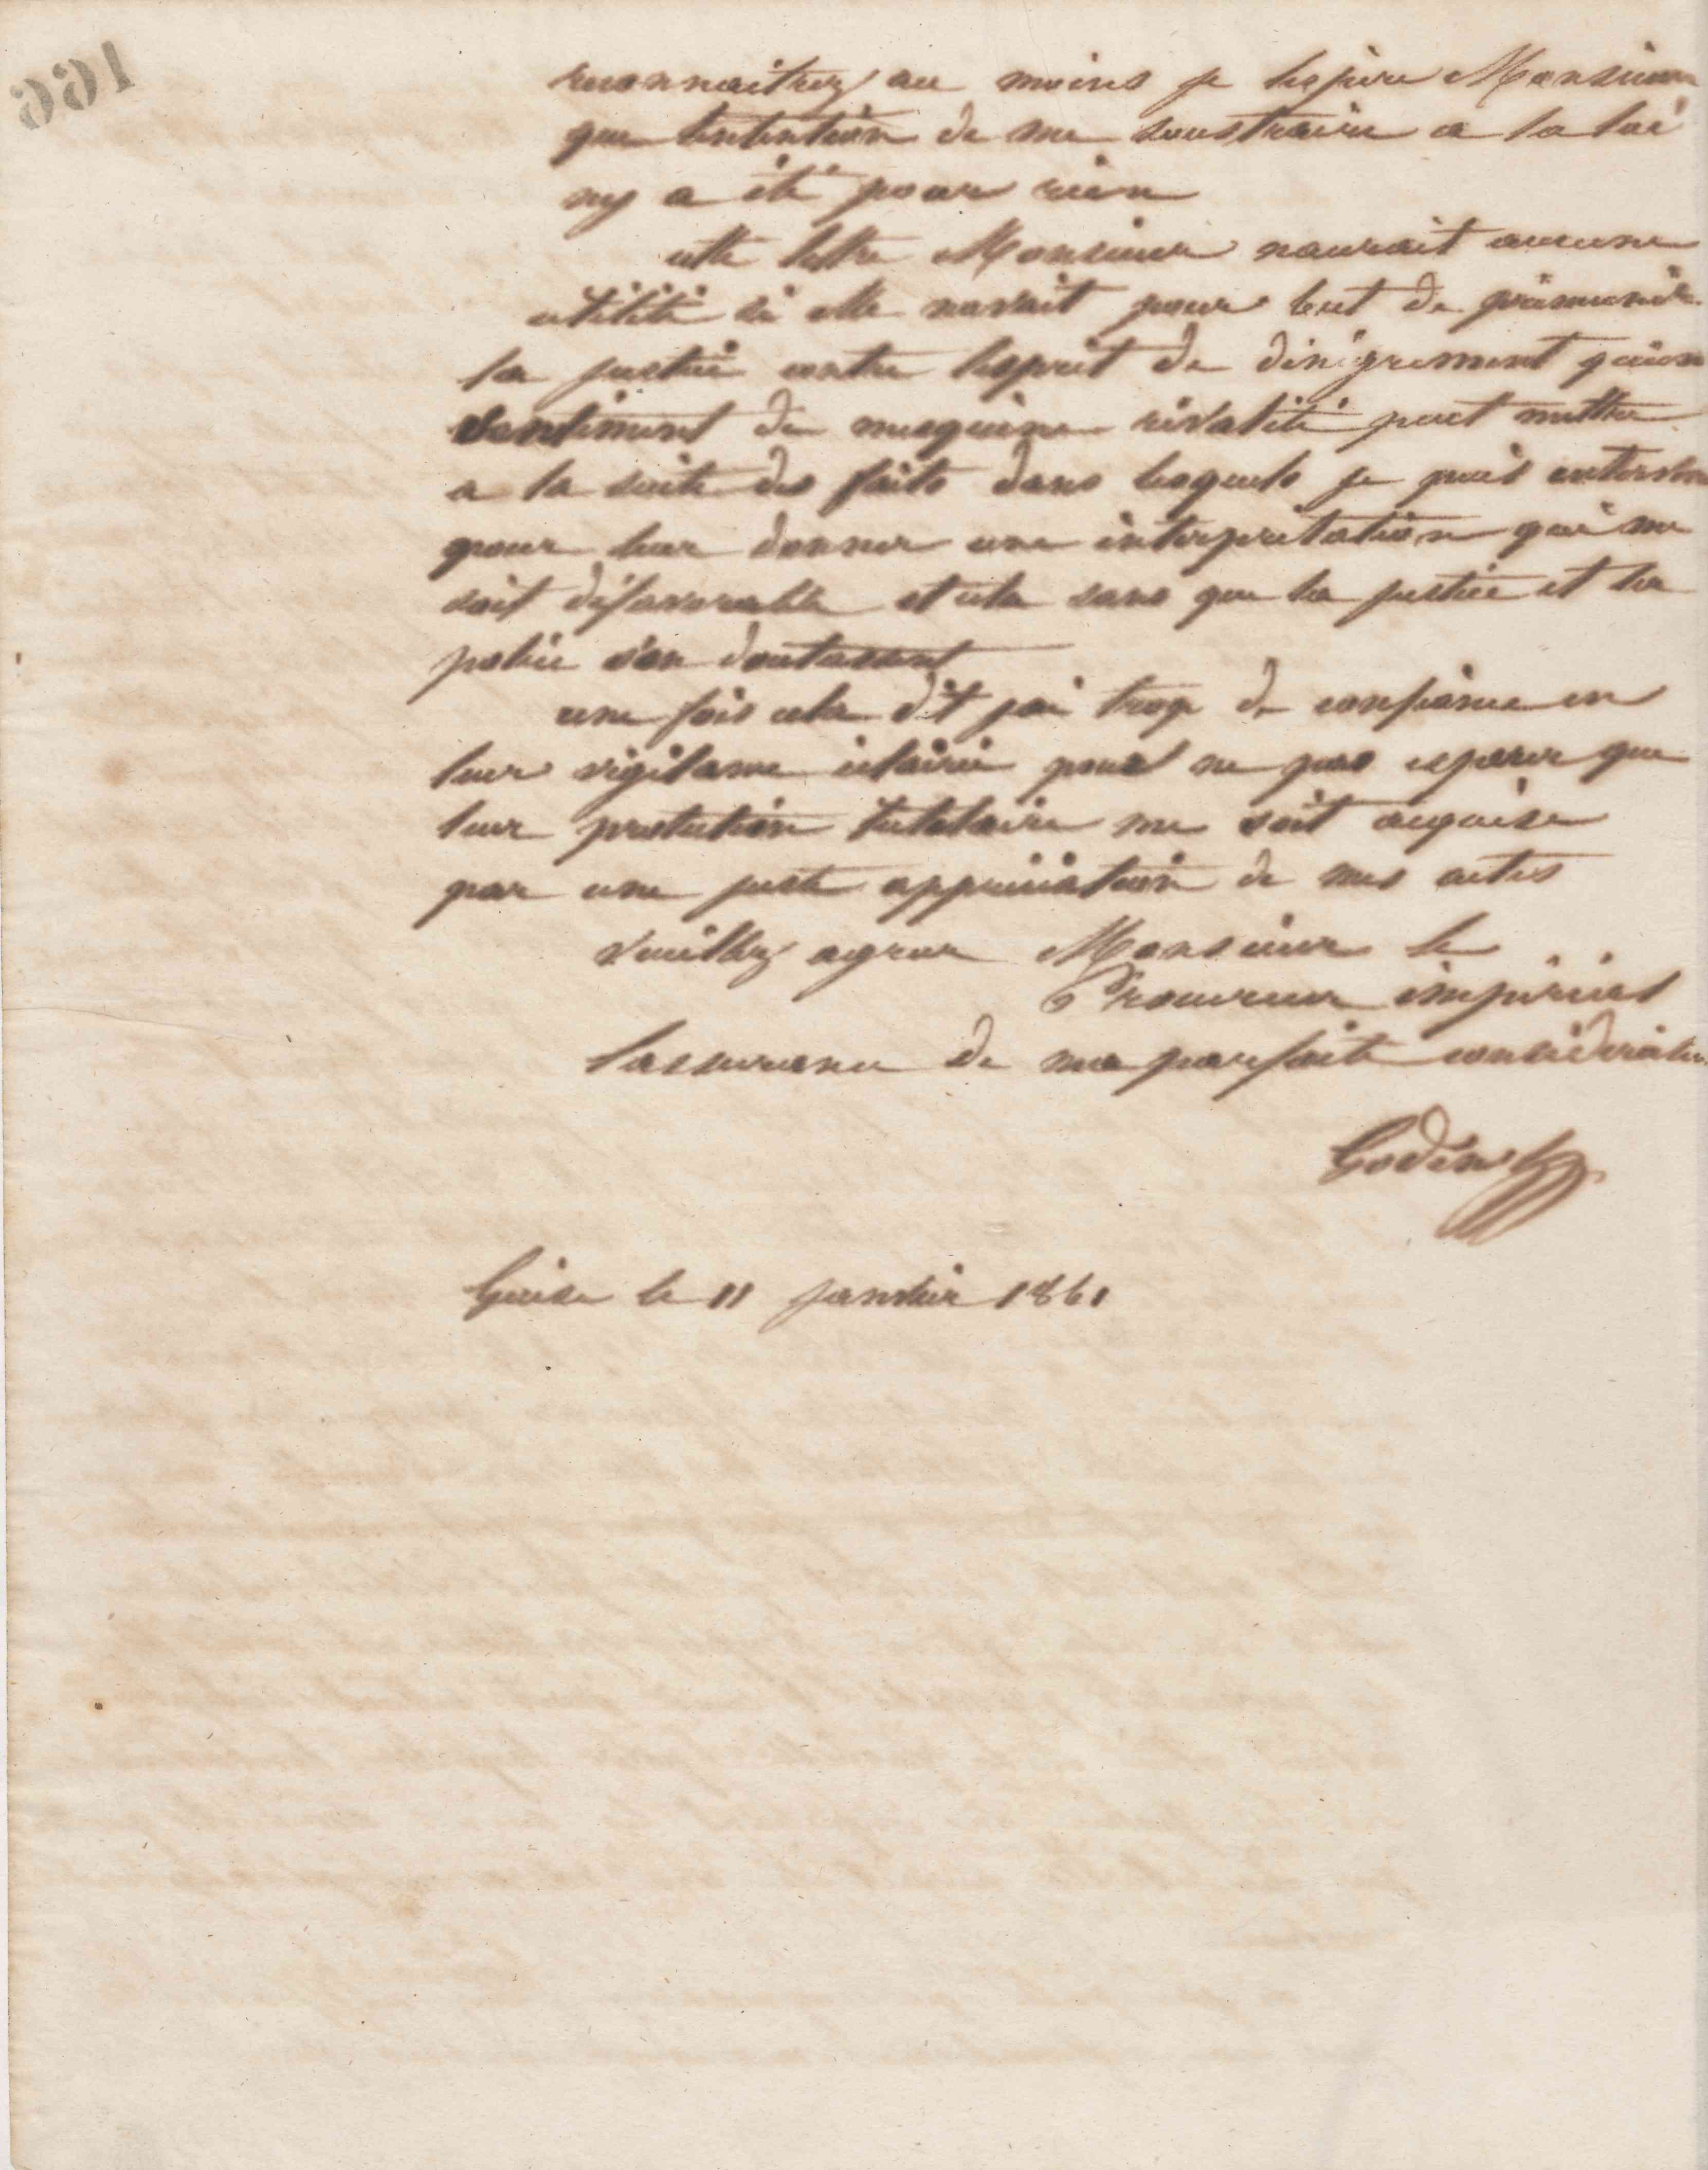 166
reconnaitrez au moins je lespère Monsieur
que lintention de me soustraire a la loi
ny a été pour rien
cette lettre Monsieur naurait aucune
utilité si elle navait pour but de prémunir
la justice contre lesprit de dénigrement quun
sentiment de mesquine rivalité peut mettre
a la suite des faits dans lesquels je puis intervenir
pour leur donner une interprétation qui me
soit défavorable et cela sans que la justice et la
police s'en doutassent
une fois cela dit jai trop de confiance en
leur vigilance éclairée pour ne pas esperer que
leur protection tutélaire me soit acquise
par une juste appréciation de mes actes
Veuillez agreer Monsieur le
Procureur impérial
lassurance de ma parfaite considération
Godin
Guise le 11 janvier 1861